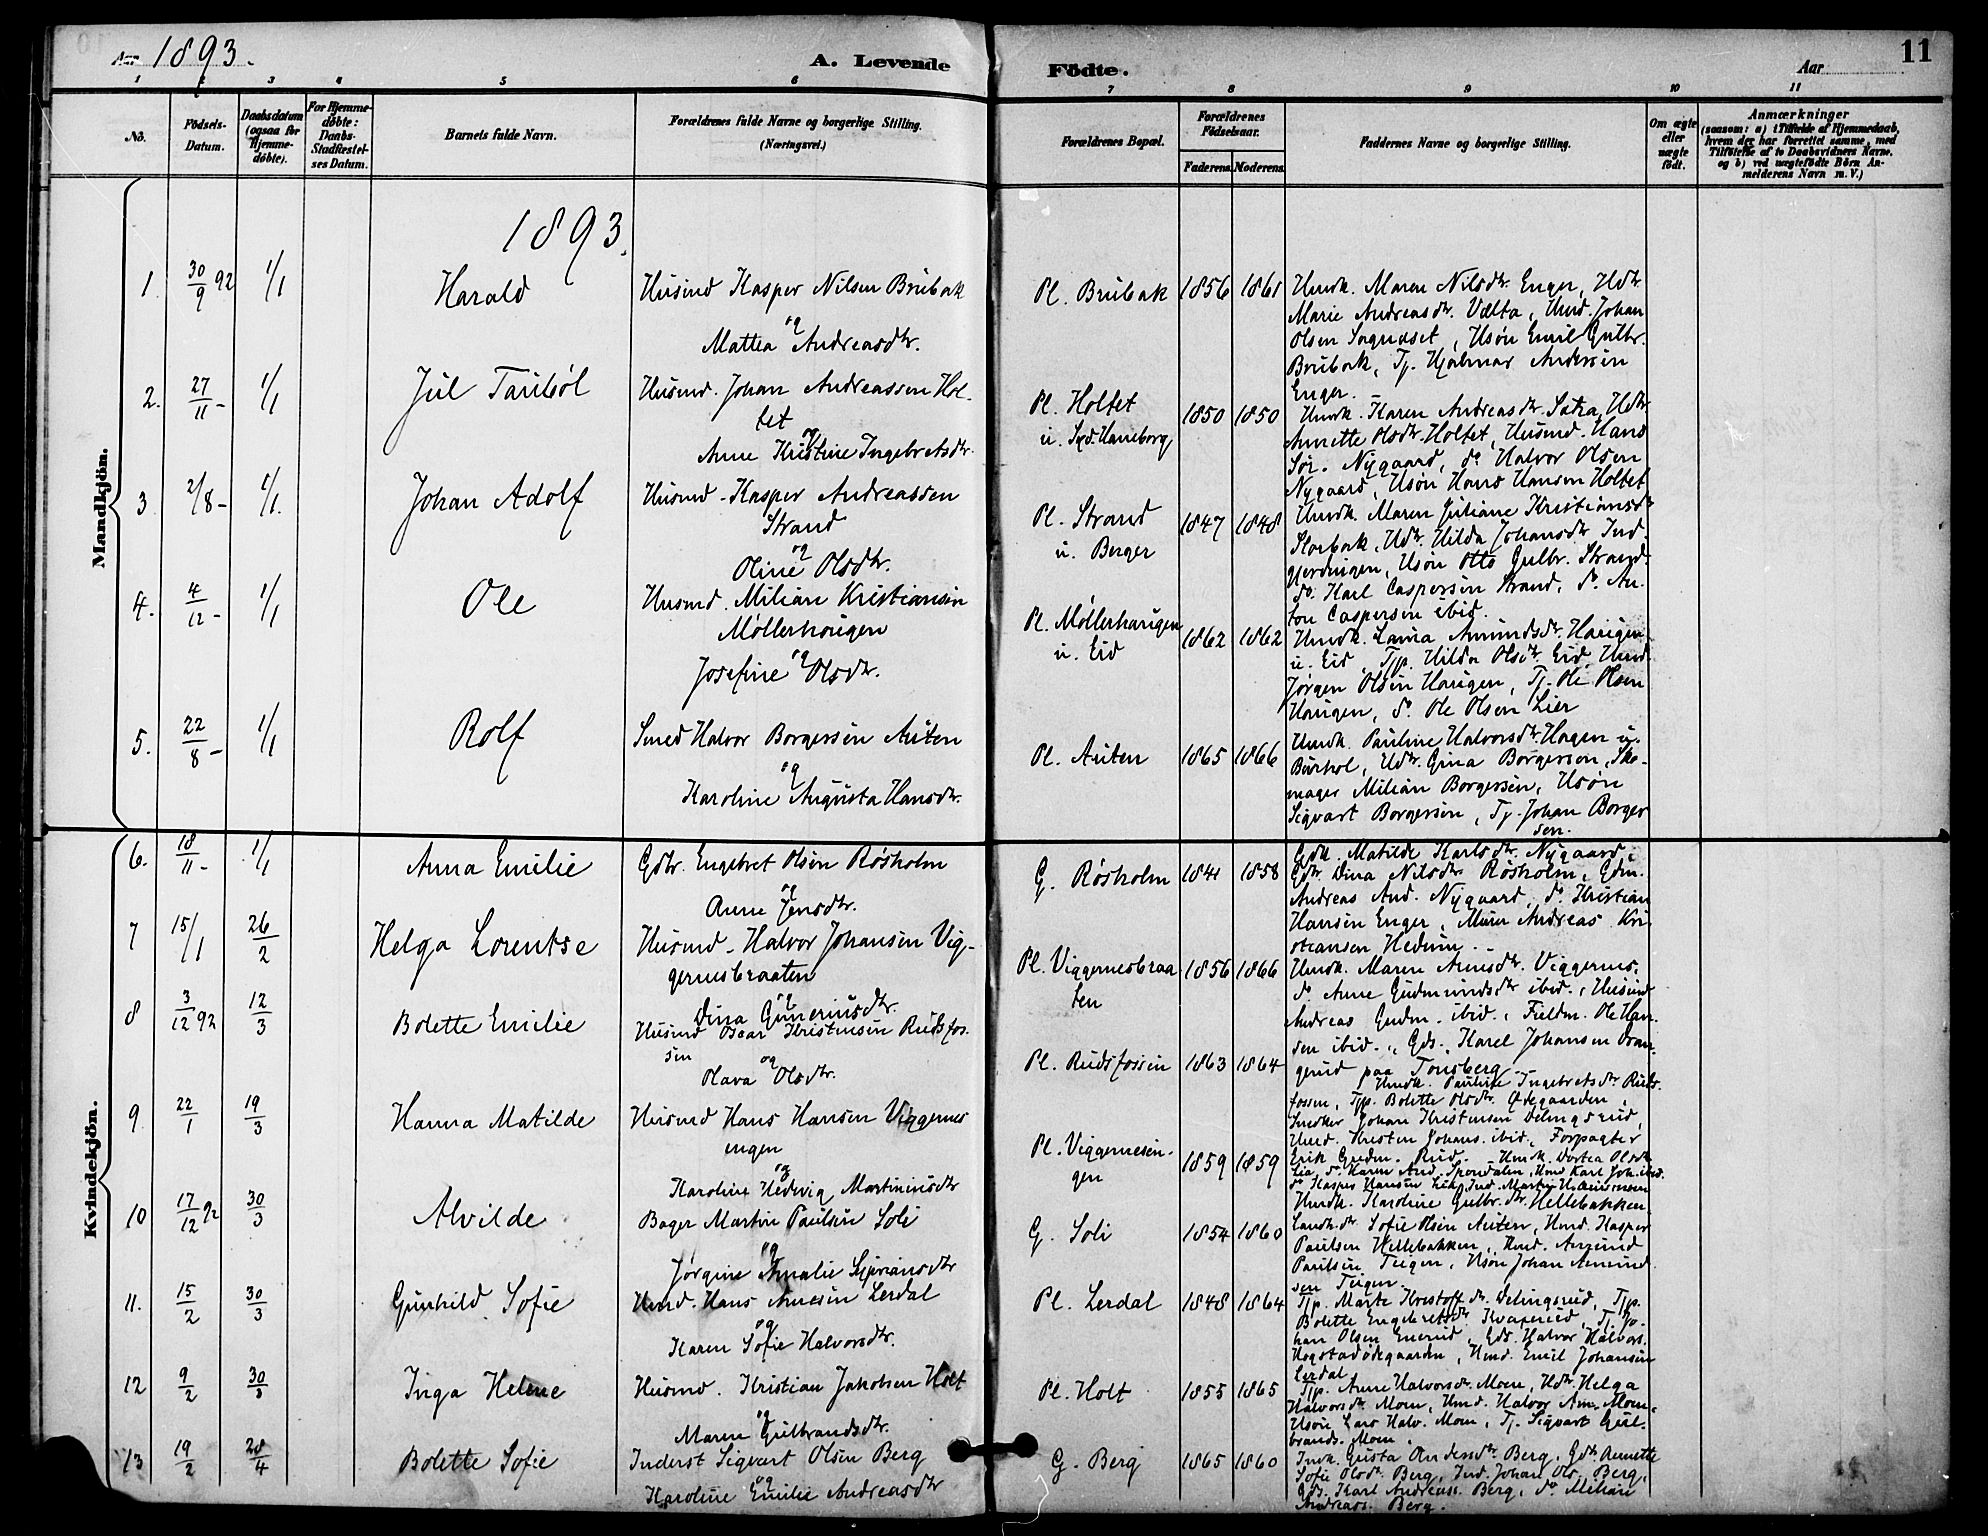 Aar 1893.
A. Levende
Födte.
Aar
11
1 2 3 4 5 6 7 8 9 10 11
No.
Födsels-Datum.
Daabsdatum (ogsaa for Hjemme-döbte).
For Hjemme-döbte: Daabs-Stadfæstel-ses Datum.
Barnets fulde Navn.
Forældrenes fulde Navne og borgerlige Stilling.
(Næringsvei.)
Forældrenes Bopæl.
Forældrenes Födselsaar.
Faderens. Moderens.
Faddernes Navne og borgerlige Stilling.
Om ægte eller uægte födt.
Anmærkninger
(saasom: a) i Tilfælde af Hjemmedaab, hvem der har forrettet samme, med Tilföielse af to Daabsvidners Navne, og b) ved uægtefödte Börn Anmelderens Navn m. V.)
Mandkjön.
1893.
1. 30/9 92 1/1 Harald Husmd Kasper Nilsen Brubak
og
Mattea Andreasdtr.
Pl. Brubak 1856 1861 Hmdk. Maren Nilsdtr. Enger, Udtr.
Marie Andreasdtr. Vælta, Hmd. Johan
Olsen Sagnæset, Usøn Emil Gulbr.
Brubak, Tj. Hjalmar Andersen
Enger.
2. 27/11 - 1/1 Jul Taubøl Husmd. Johan Andreassen Hol-
tet
og
Anne Kristine Ingebretsdtr.
Pl. Holtet
u. Sqd. Haneborg 1850 1850 Hmdk. Karen Andreasdtr. Sætra, Udtr.
Annette Olsdtr. Holtet, Husmd. Hans
Sør. Nygaard, do Halvor Olsen
Nygaard, Usøn Hans Hansen Holtet
3 2/8 - 1/1. Johan Adolf Husmd. Kasper Andreassen
Strand
og
Oline Olsdtr.
Pl. Strand
u. Berger 1847 1848 Hmdk. Maren Juliane Kristiansdtr
Storbak, Udtr. Hilda Johansdtr. Ind-
gjerdingen, Usøn Otto Gulbr. Strand,
do Karl Caspersen Strand, do An-
ton Caspersen ibid.
4. 4/12 - 1/1 Ole Husmd. Milian Kristiansen
Møllerhaugen
og
Josefine Olsdtr.
Pl. Møllerhaugen
u. Eid 1862 1862 Hmdk. Laura Amundsdtr. Haugen
u. Eid, Tjp. Hilda Olsdtr. Eid, Hmd.
Jørgen Olsen Haugen, Tj. Ole Olsen
Haugen, do Ole Olsen Lier
5. 22/8 - 1/1 Rolf Smed Halvor Borgersen Auten
og
Karoline Augusta Hansdtr.
Pl. Auten 1865 1866 Hmdk. Pauline Halvorsdtr. Hagen u.
Burhol, Udtr. Gina Borgersen, Sko-
mager Milian Borgersen, Usøn
Sigvart Borgersen, Tj. Johan Borger
sen.
Kvindekjön.
6. 18/11 - 1/1 Anna Emilie Gdbr. Engebret Olsen Røsholm
og
Anne Jensdtr.
G. Røsholm 1841 1858 Gdk. Matilde Karlsdtr. Nygaard,
Gdtr. Dina Nilsdtr. Røsholm, Gdm.
Andreas And. Nygaard, do Kristian
Hansen Enger, Murer Andreas Kri-
stiansen Hedum.
7 15/1 26/2 Helga Lorentse Husmd. Halvor Johansen Vig-
gernesbraaten
og
Dina Guneriusdtr.
Pl. Viggernesbraa
ten 1856 1866 Hmdk. Maren Arnesdtr. Viggernes,
do Anne Gudmundsdtr ibid., Husmd
Andreas Gudm. ibid., Fuldm. Ole Han-
sen ibid., Gds. Karel Johansen Oran-
gerud paa Tonsberg.
8 3/12 92 12/3 Bolette Emilie Husmd Oscar Kristensen Rudsfos-
sen
og
Olava Olsdtr.
Pl. Rudsfossen 1863 1864 Hmdk. Pauline Ingebretsdtr Ruds-
fossen, Tjp. Bolette Olsdtr. Ødegaarden,
Snedker Johan Kristensen Delingsrud,
Hmd. Kristen Johans. ibid, Forpagter
Erik Gudm. Rud.
9 22/1 19/3 Hanna Matilde Husmd Hans Hansen Viggernes
engen
og
Karoline Hedevig Martiniusdtr
Pl. Viggernesen-
gen 1859 1859 Hmdk. Dortea Olsdtr
Lia, do Karen And. Spondalen, Hmd Karl Joh. ibid.
do Kasper Hansen Lia, Ind. Martin
10 17/12 92 30/3 Alvilde Bager Martin Paulsen Soli
og
Jørgine Amalie Sypriansdtr
G. Soli 1854 1860 Hmdk. Karoline Gulbr.dtr. Hellebakken,
Landh. dtr. Sofie Olsen Auten, Hmd. Kasper
Paulsen Hellebakken, Hmd. Amund
Paulsen Teigen, Usøn Johan Amund
sen Teigen.
11. 15/2 30/3 Gunhild Sofie Hmd. Hans Arnesen Lerdal
og
Karen Sofie Halvorsdtr.
Pl. Lerdal 1848 1864 Tjp. Marte Kristoff.dtr. Delingsrud, Tjp.
Bolette Engebretsdtr. Kragerud, Tj. Jo-
han Olsen Enerud, Gds. Halvor Halvors.
Hogstadødegaarden, Hmd. Emil Johansen
Lerdal.
12 9/2 30/3 Inga Helene Husmd. Kristian Jakobsen Holt
og
Maren Gulbrandsdtr.
Pl. Holt 1855 1865 Tjp. Anne Halvorsdtr. Moen, Udtr. Helga
Halvorsdtr Moen, Hmd. Halvor Am. Moen,
Usøn Lars Halv. Moen, Tj. Sigvart Gul-
brands. Moen.
13 19/2 28/4 Bolette Sofie Inderst Sigvart Olsen Berg
og
Karoline Emilie Andreasdtr
G. Berg 1865 1860 Indk. Gusta Andersdtr. Berg, Gdtr Annette
Sofie Olsdtr. Berg, Ind. Johan Ols. Berg,
Gds. Karl Andreass. Berg, do Milian
Andreass. Berg.